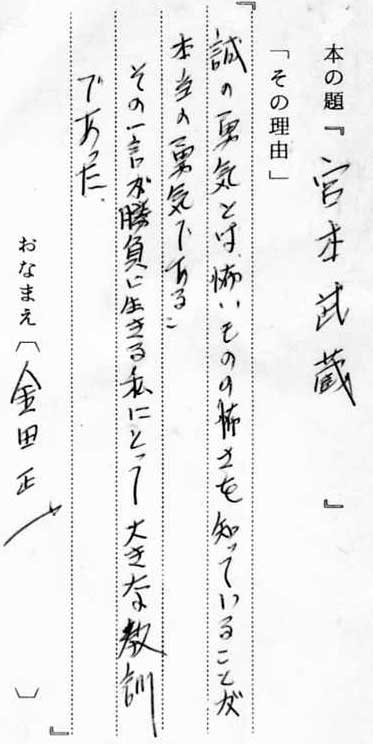 本の題『宮本武蔵』
「その理由」
『誠の勇気とは、怖いものの怖さを知っていることが
本当の勇気である
その一言が勝負に生きる私にとって大きな教訓
であった。』
おなまえ〔金田正一〕